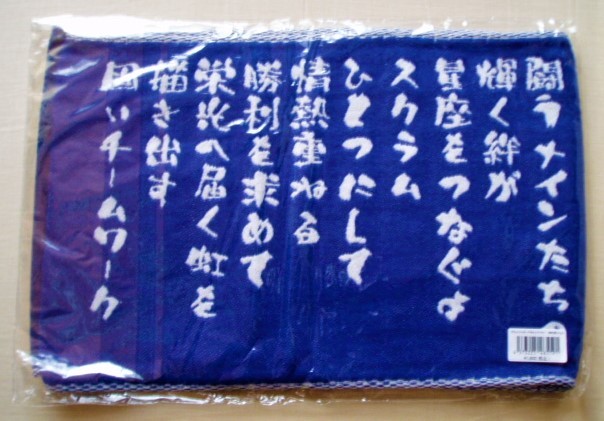 闘うナインたちよ
輝く絆が
星座をつなぐよ
スクラム
ひとつにして
情熱重ねる
勝利を求めて
栄光へ届く虹を
描き出す
固いチームワーク